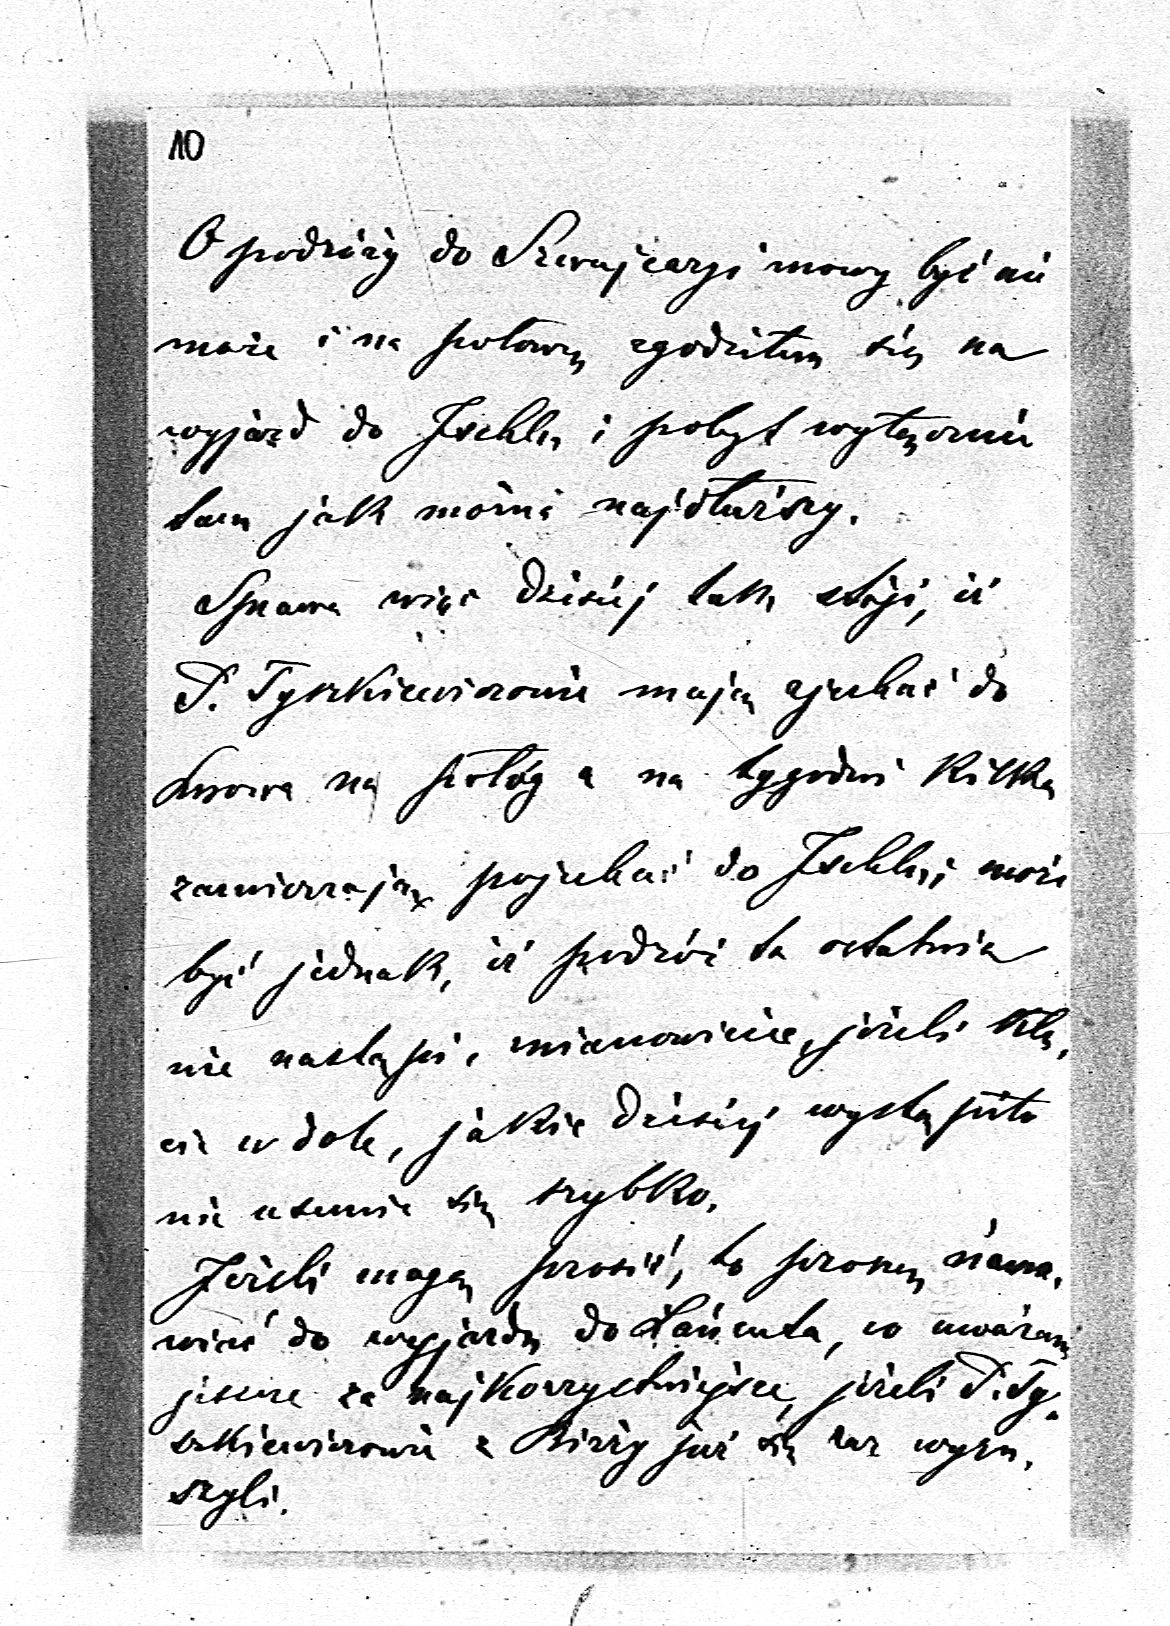 10
O podróży do Szwajcaryi mowy być nie
może i na połowę zgodziłem się na
wyjazd do Ischlu i pobyt wyłącznie
tam jak możni najdłuższy.
Sprawa więc dzisiej tak stoji, iż
P. Tyszkiewiczowie mają zjechać do
Lwowa na połóg a na tygodni kilka
zamierzają pojechać do Ischlu; może
być jednak, iż podróż ta ostatnia
nie nastąpi, mianowicie, jeżeli kłu,
cie w dole, jakie dzisiej wystąpiło
nie usunie się szybko.
Jeżeli mogę prosić, to proszę nama,
wiać do wyjazdu do Łańcuta, co uważam
jeszcze za najkorzystniejsze, jeżeli P. Ty,
szkiewiczowie z Birży już się raz wyru,
szyli.